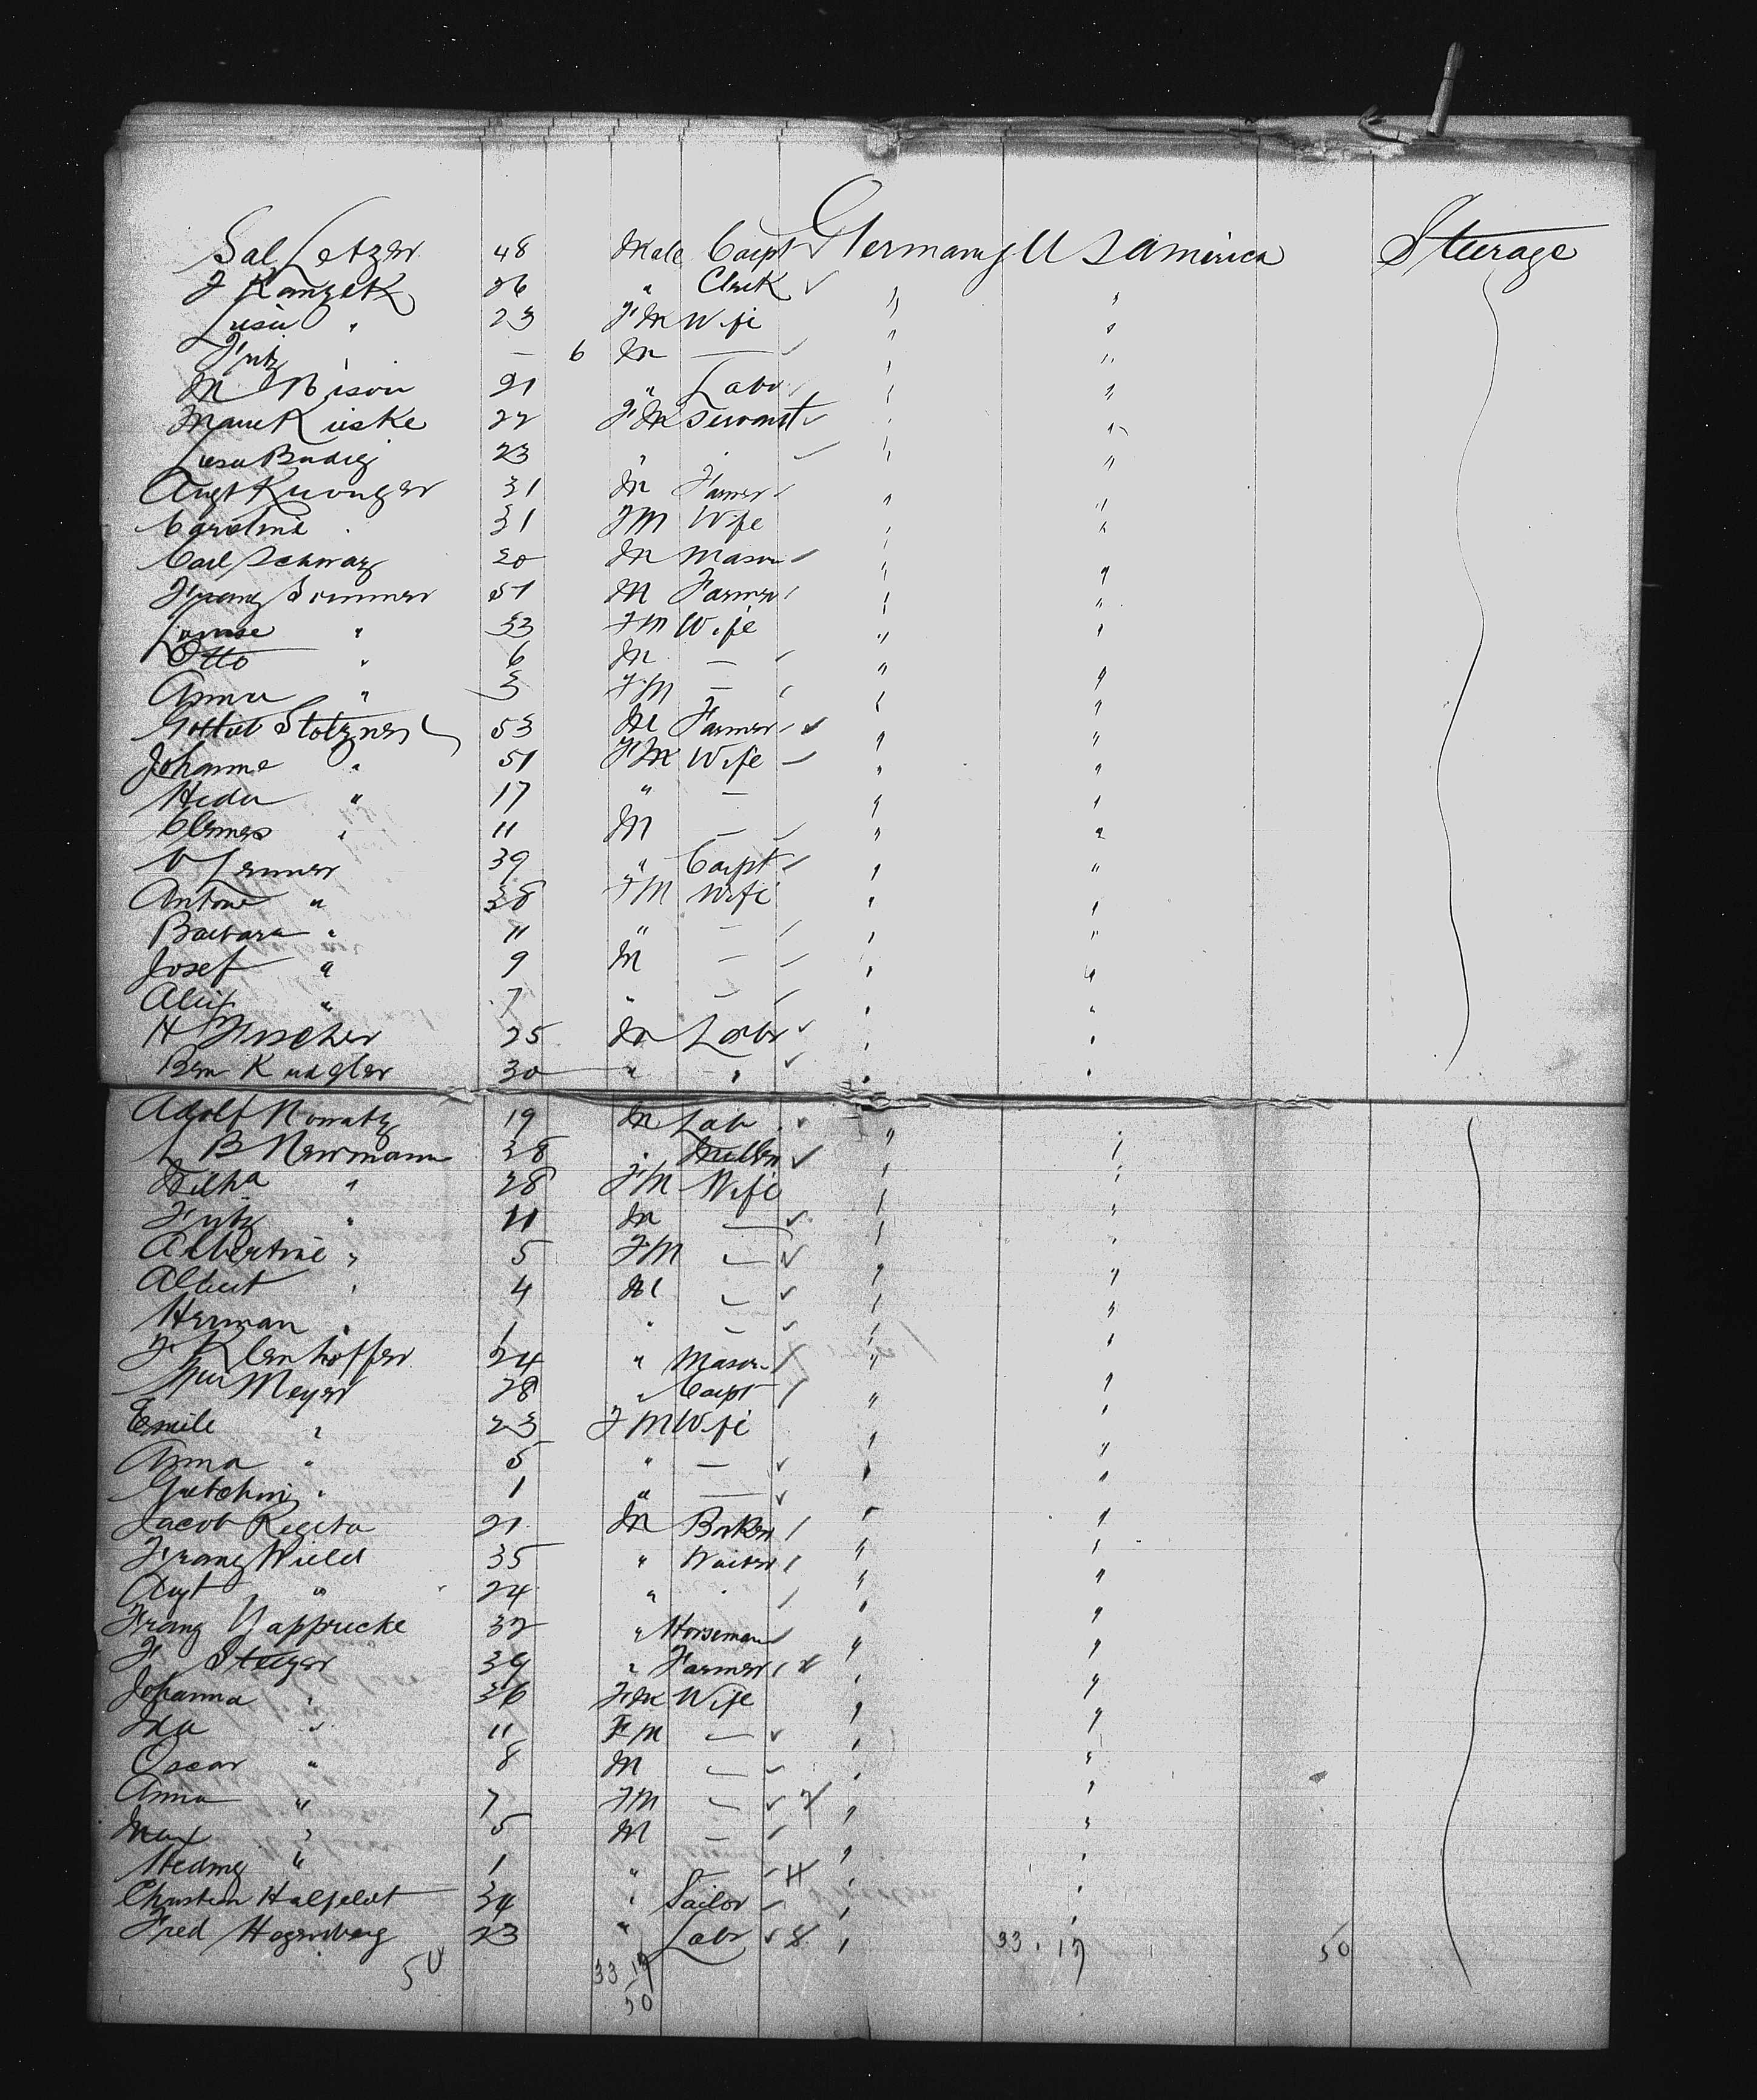 Sal Letzer 48 Male Carpt Germany U S America Steerage
F Kanzek 26 " Clerk " "
Luise " 23 FM Wife " "
Fritz " — 6 M — " "
M Bison 21 " Labr " "
Marie Kieske 22 FM Servant " "
Luise Budig 23 " " " "
Augt 31 M Farmer " "
Caroline " 31 FM Wife " "
Carl Schwarz 20 M Mason " "
Franz Sommer 51 M Farmer " "
Louise " 33 FM Wife " "
Otto " 6 M — " "
Anna " 3 FM — " "
Gottlieb Stolzner 53 M Farmer " "
Johanne " 51 FM Wife " "
Heda " 17 " — " "
Clemes " 11 M — " "
V Lenner 39 " Carpt " "
Antone " 38 FM Wife " "
Barbara " 11 " — " "
Josef " 9 M — " "
Alix " 7 " — " "
H Fischer 25 M Labr " "
Ben Kudgler 30 " " " "
Adolf Nowatz 19 M Labr " "
L B Newmann 38 " Miller " "
" 28 FM Wife " "
Fritz " 11 M — " "
Albertine " 5 FM — " "
Albert " 4 M — " "
Herman " 1 " — " "
F. Klenhoffer 24 " Mason " "
Meyer 28 " Carpt " "
Emile " 23 FM Wife " "
Anna " 5 " — " "
Gretchin " 1 " — " "
Jacob Regeta 21 M Baker " "
Franz Wield 35 " Waiter " "
Augt " 24 " " " "
Franz Wapprucke 32 " Horseman " "
F Steizer 39 " Farmer " "
Johanna " 36 FM Wife " "
Ida " 11 FM — " "
Oscar " 8 M — " "
Anna " 7 FM — " "
Max " 5 M — " "
Hedwig " 1 " — " "
Christian Halfeldt 34 " Sailor " "
Fred Hagenberg 23 " Labr " 33 . 17 50
50 33 17
50